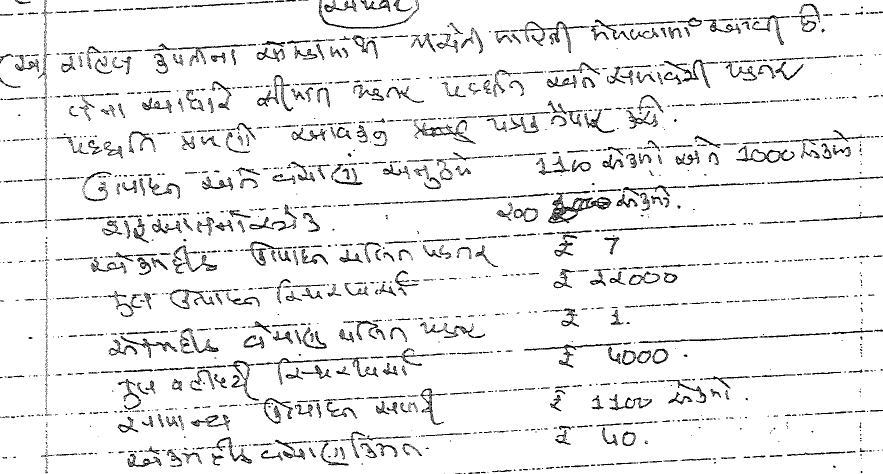 અથવા
(બ) રાહિલ કંપનીના ચોપડામાંથી નીચેની માહિતી મેળવવામાં આવી છે.
તેના આધારે સીમાંત પડતર પદ્ધતિ અને સમાવેશી પડતર
પદ્ધતિ પ્રમાણે આવકનું પત્રક તૈયાર કરો.
ઉત્પાદન અને વેચાણ અનુક્રમે 1100 એકમો અને 1000 એકમો.
શરૂઆતનો સ્ટોક. ૨00 એકમો.
એકમદીઠ ઉત્પાદન ચલિત પડતર ₹ 7
કુલ ઉત્પાદન સ્થિરખર્ચા ₹ ૨૨000
એકમદીઠ વેચાણ ચલિત પડતર ₹ 1.
કુલ વહીવટી સ્થિરખર્ચા ₹ ૫000.
સામાન્ય ઉત્પાદન સપાટી ₹ 1100 એકમો.
એકમદીઠ વેચાણકિંમત ₹ ૫0.